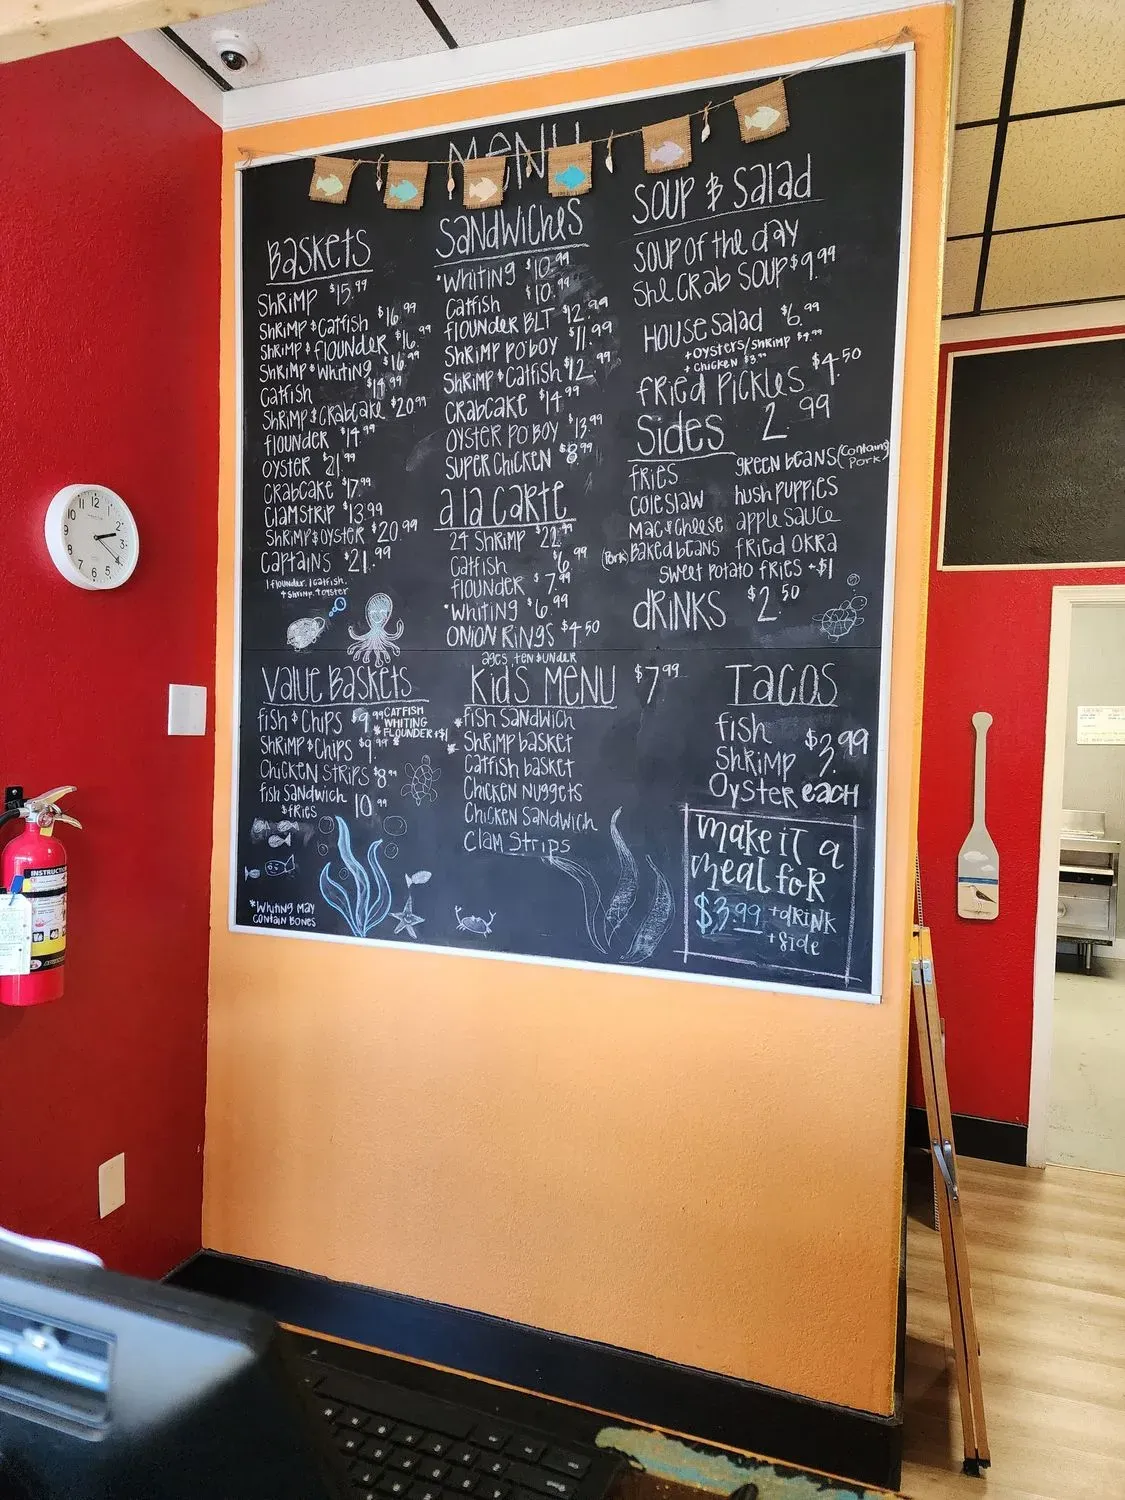 MENU
BASKETS
SHRIMP $15.99
SHRIMP & CATFISH $16.99
SHRIMP & FLOUNDER $16.99
SHRIMP & WHITING $16.99
CATFISH $14.99
SHRIMP & CRABCAKE $20.99
FLOUNDER $14.99
OYSTER $21.99
CRABCAKE $17.99
CLAMSTRIP $13.99
SHRIMP & OYSTER $20.99
CAPTAINS $21.99
1 flounder, 1 catfish,
+ shrimp, + oyster
SANDWICHES
*WHITING $10.99
CATFISH $10.99
FLOUNDER BLT $12.99
SHRIMP PO'BOY $11.99
SHRIMP & CATFISH $12.99
CRABCAKE $14.99
OYSTER PO BOY $13.99
SUPER CHICKEN $8.99
a la CARTE
24 SHRIMP $22.99
CATFISH $6.99
FLOUNDER $7.99
*WHITING $6.99
ONION RINGS $4.50
SOUP & Salad
SOUP OF the day
She CRAB SOUP $9.99
HOUSE SALAD $6.99
+ OYSTERS/SHRIMP $9.99
+ CHICKEN $3.99
FRIED PICKLES $4.50
Sides 2.99
FRIES
GREEN BEANS (Contains Pork)
COLE SLAW
HUSH PUPPIES
MAC & Cheese
apple sauce
(Pork) Baked beans
FRIED OKRA
SWEET POTATO FRIES +$1
DRINKS $2.50
VALUE BASKETS
FISH & CHIPS $9.99
CATFISH
WHITING
FLOUNDER +$1
SHRIMP & CHIPS $9.99
CHICKEN STRIPS $8.99
FISH SANDWICH 10.99
& FRIES
*WHITING MAY
CONTAIN BONES
ages ten & under
KIDS MENU $7.99
*FISH SANDWICH
*SHRIMP BASKET
CATFISH BASKET
CHICKEN NUGGETS
CHICKEN SANDWICH
CLAM STRIPS
TACOS
FISH
SHRIMP $3.99
OYSTER EACH
MAKE IT A
MEAL FOR
$3.99 + DRINK
+ Side